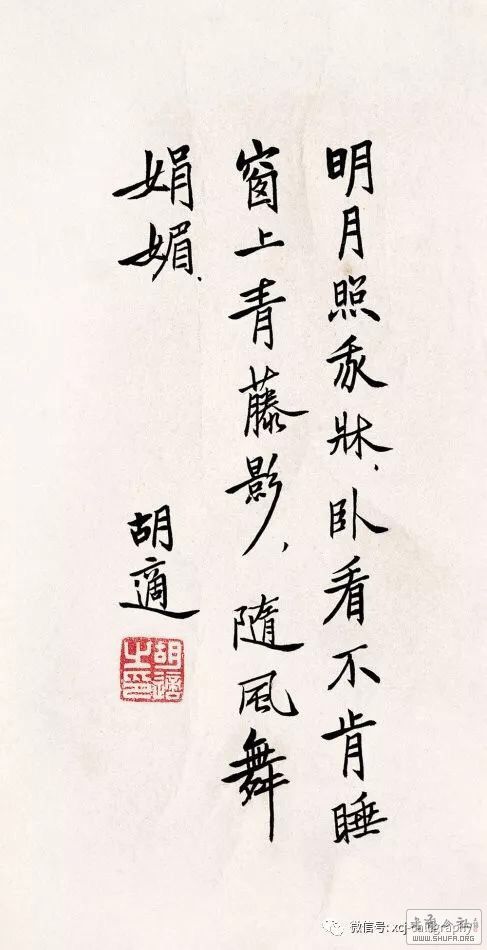 明月照我牀、卧看不肯睡
窗上青藤影，隨風舞
娟媚、
胡適
胡適之印
微信号: xcj-calligraphy
WWW.SHUFA.ORG